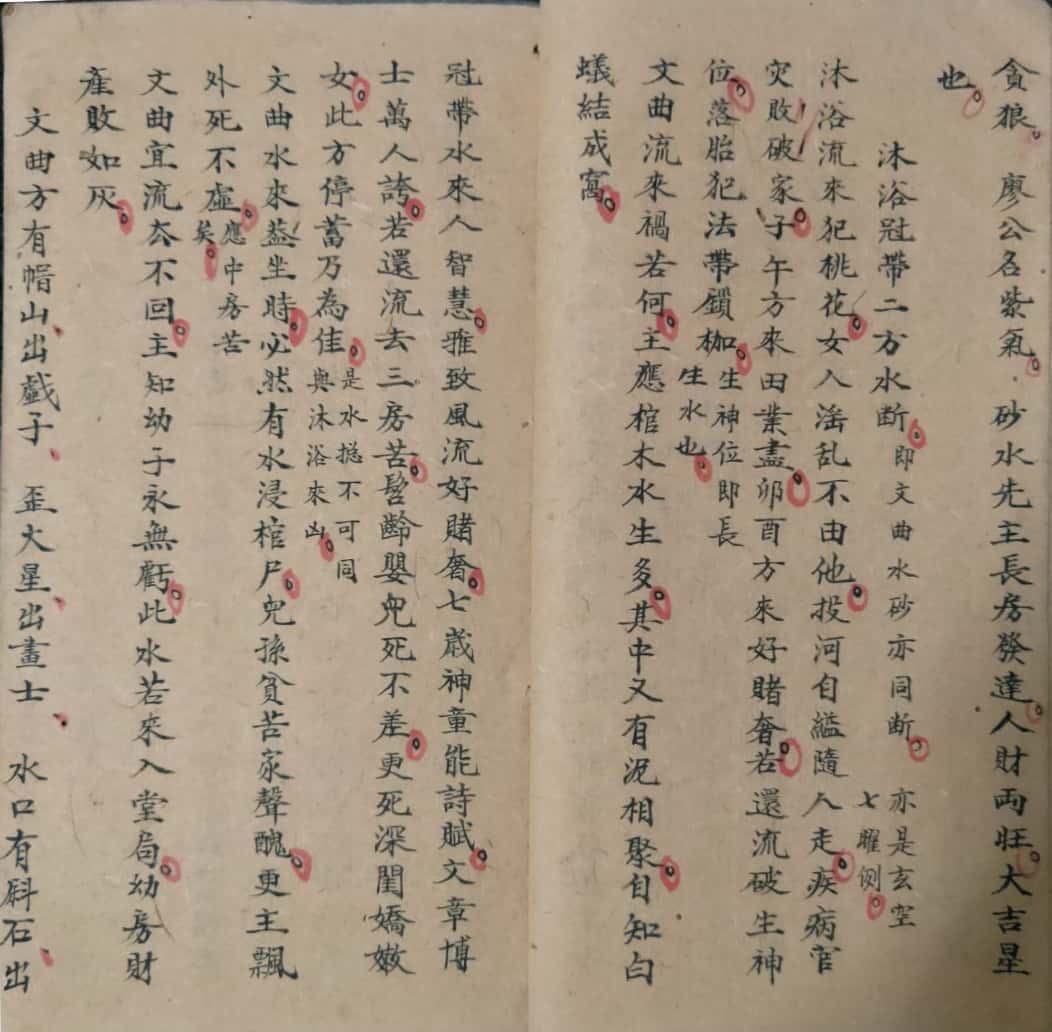 貪狼。廖公名紫氣。砂水先主長房發達。人財両旺。大吉星
也。
沐浴冠帶二方水断。即文曲水砂亦同断。亦是玄空
七曜例。
沐浴流來犯桃花。女人滛乱不由他。投河自縊隨人走。疾病官
灾敗破家。子午方來田業盡。卯酉方來好賭奢。若還流破生神
位。落胎犯法帶鎖枷。生神位即長
生水也。
文曲流來禍若何。主應棺木水生多。其中又有泥相聚。自知白
蟻結成窩。
冠帶水來人智慧。雅致風流好賭奢。七歲神童能詩賦。文章博
士萬人誇。若還流去三房苦。髫齡嬰兒死不差。更死深閨嬌嫩
女。此方停蓄乃為佳。是水摠不可同
與沐浴來凶。
文曲水來葢坐時。必然有水浸棺尸。兒孫貧苦家聲醜。更主飄
外死不虛。應中房苦
矣。
文曲宜流厺不回。主知幼子永無虧。此水若來入堂局。幼房財
產敗如灰。
文曲方有帽山、出戯子、歪火星、出畫士、水口有斜石、出